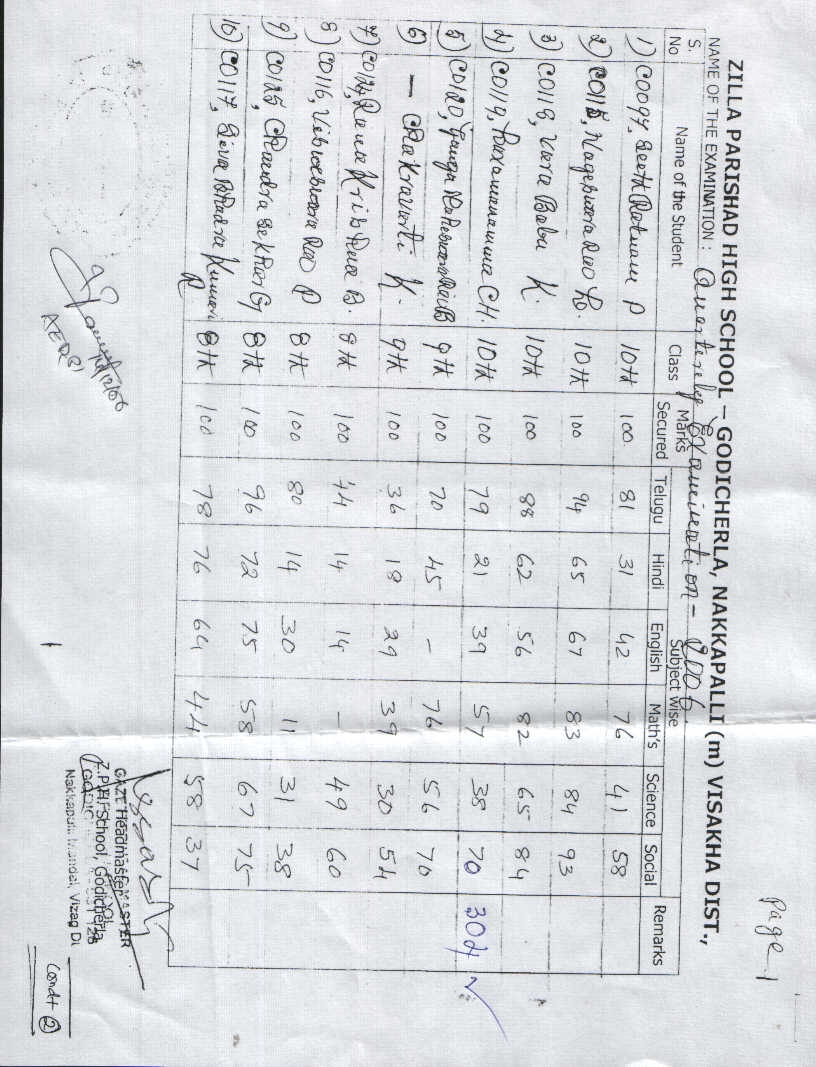 Page 1
ZILLA PARISHAD HIGH SCHOOL – GODICHERLA, NAKKAPALLI (m) VISAKHA DIST.,
NAME OF THE EXAMINATION : Quarterly Examination - 2006
S. No Name of the Student Class Marks Secured Subject Wise Remarks
Telugu Hindi English Math's Science Social
1) C0097, Seeth Ratnam P 10th 100 81 31 42 76 41 58
2) C0115, Nageswara Rao L. 10th 100 94 65 67 83 84 93
3) C0118, Vara Babu K. 10th 100 88 62 56 82 65 84
4) C0119, CH. 10th 100 79 21 39 57 38 70 304 ✓
5) C0120, Ganga 9th 100 70 45 - 76 56 70
6) — Chakravarti K. 9th 100 36 18 29 39 30 54
7) C0124, Rama Krishna B. 8th 100 44 14 14 - 49 60
8) C0116, Visweswara Rao P 8th 100 80 14 30 11 31 38
9) C0125, Chandra Sekhar G 8th 100 96 72 75 58 67 75
10) C0117, Siva Bhadra Kumari R 8th 100 78 76 64 44 58 37
Headmaster
Z.P.H. School, Godicherla
Nakkapalli Mandal, Vizag Dt
Contd ②